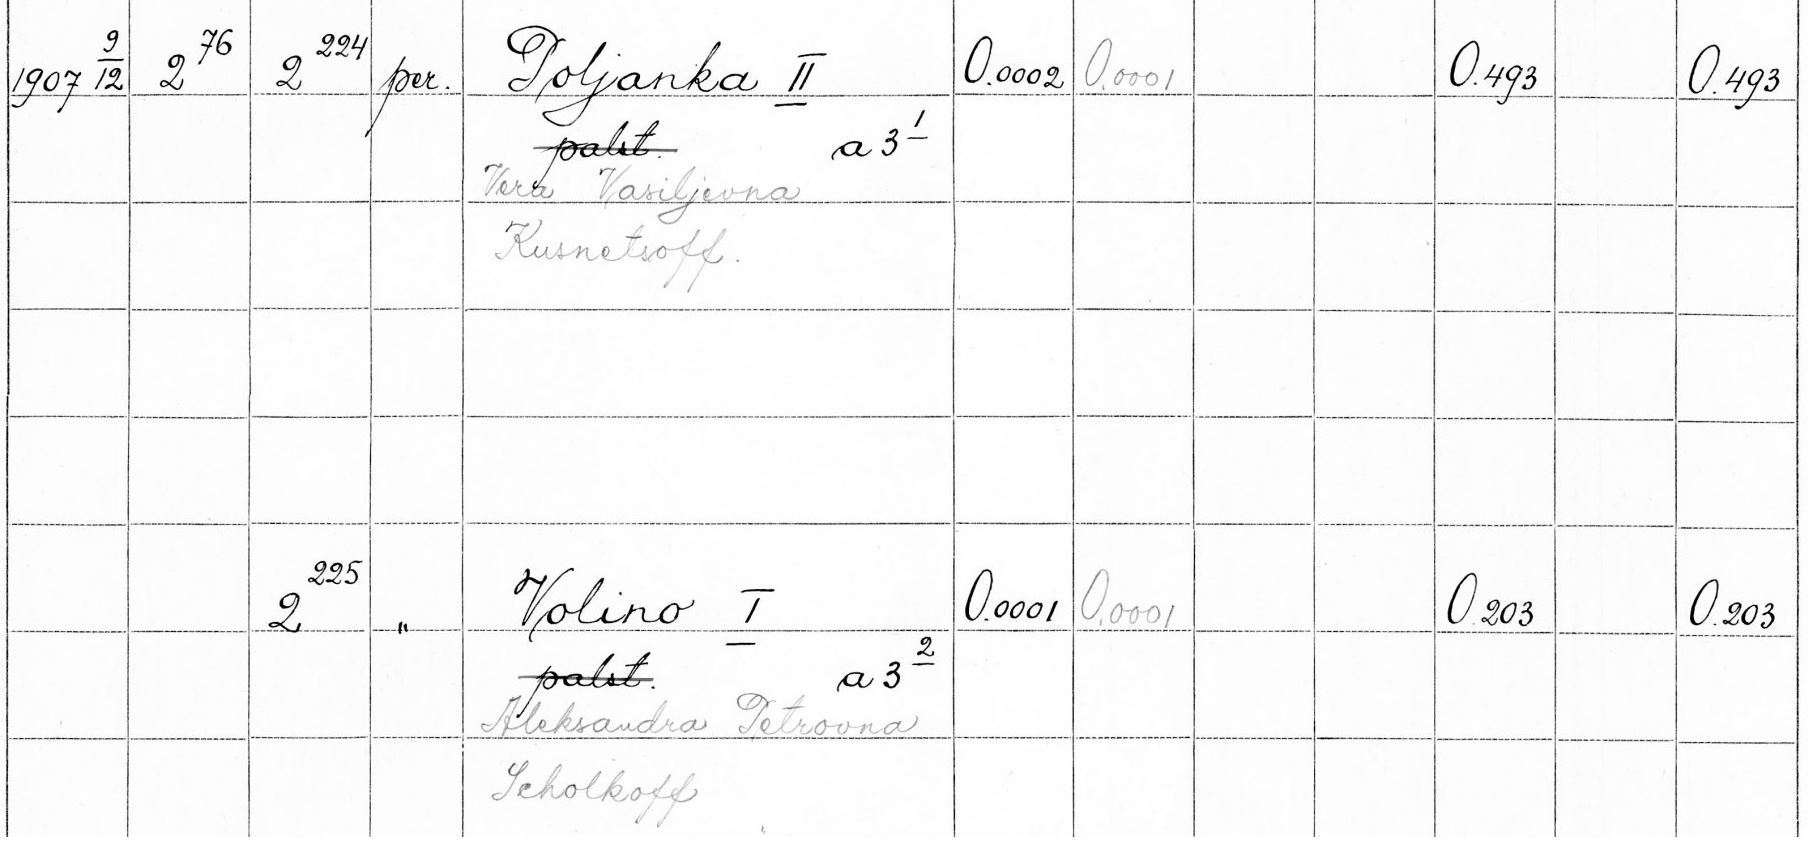 1907 9/12 2 76 2 224 per. Poljanka II 0.0002 0.0001 0.493 0.493
palst. a 3 1
Vera Vasiljevna
Kusnetsoff.
2 225 " Volino I 0.0001 0.0001 0.203 0.203
palst. a 3 2
Aleksandra Petrovna
Scholkoff